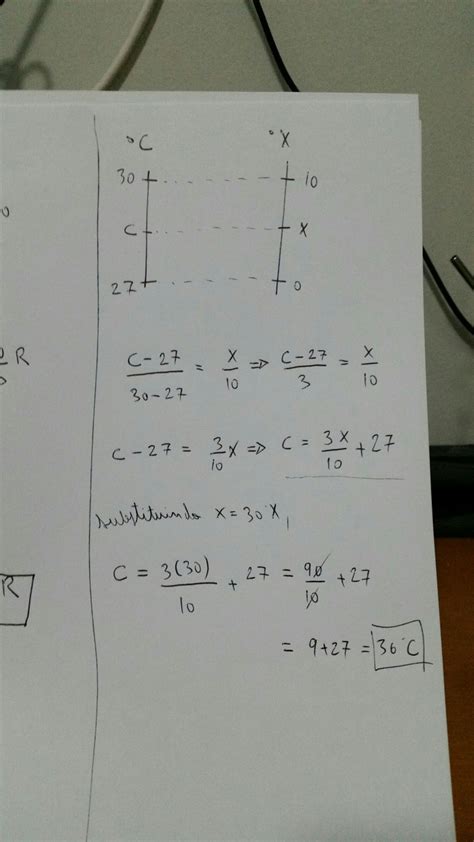 °C °X
30 10
C X
27 0
C-27/30-27 = X/10 => C-27/3 = X/10
C-27 = 3/10 X => C = 3X/10 + 27
substituindo X = 30°X,
C = 3(30)/10 + 27 = 90/10 + 27
= 9+27 = 36°C
R
R